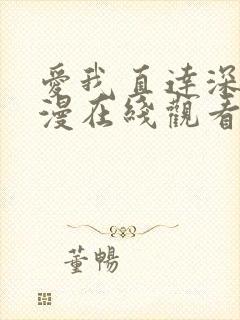 愛我直達深
漫在綫觀看
董暢